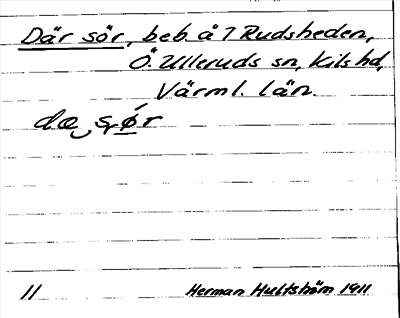 Där sör, beb. å 7 Rudsheden,
Ö. Ulleruds sn, Kils hd,
Värml. län.
dæ sør
11 Herman Hultström 1911